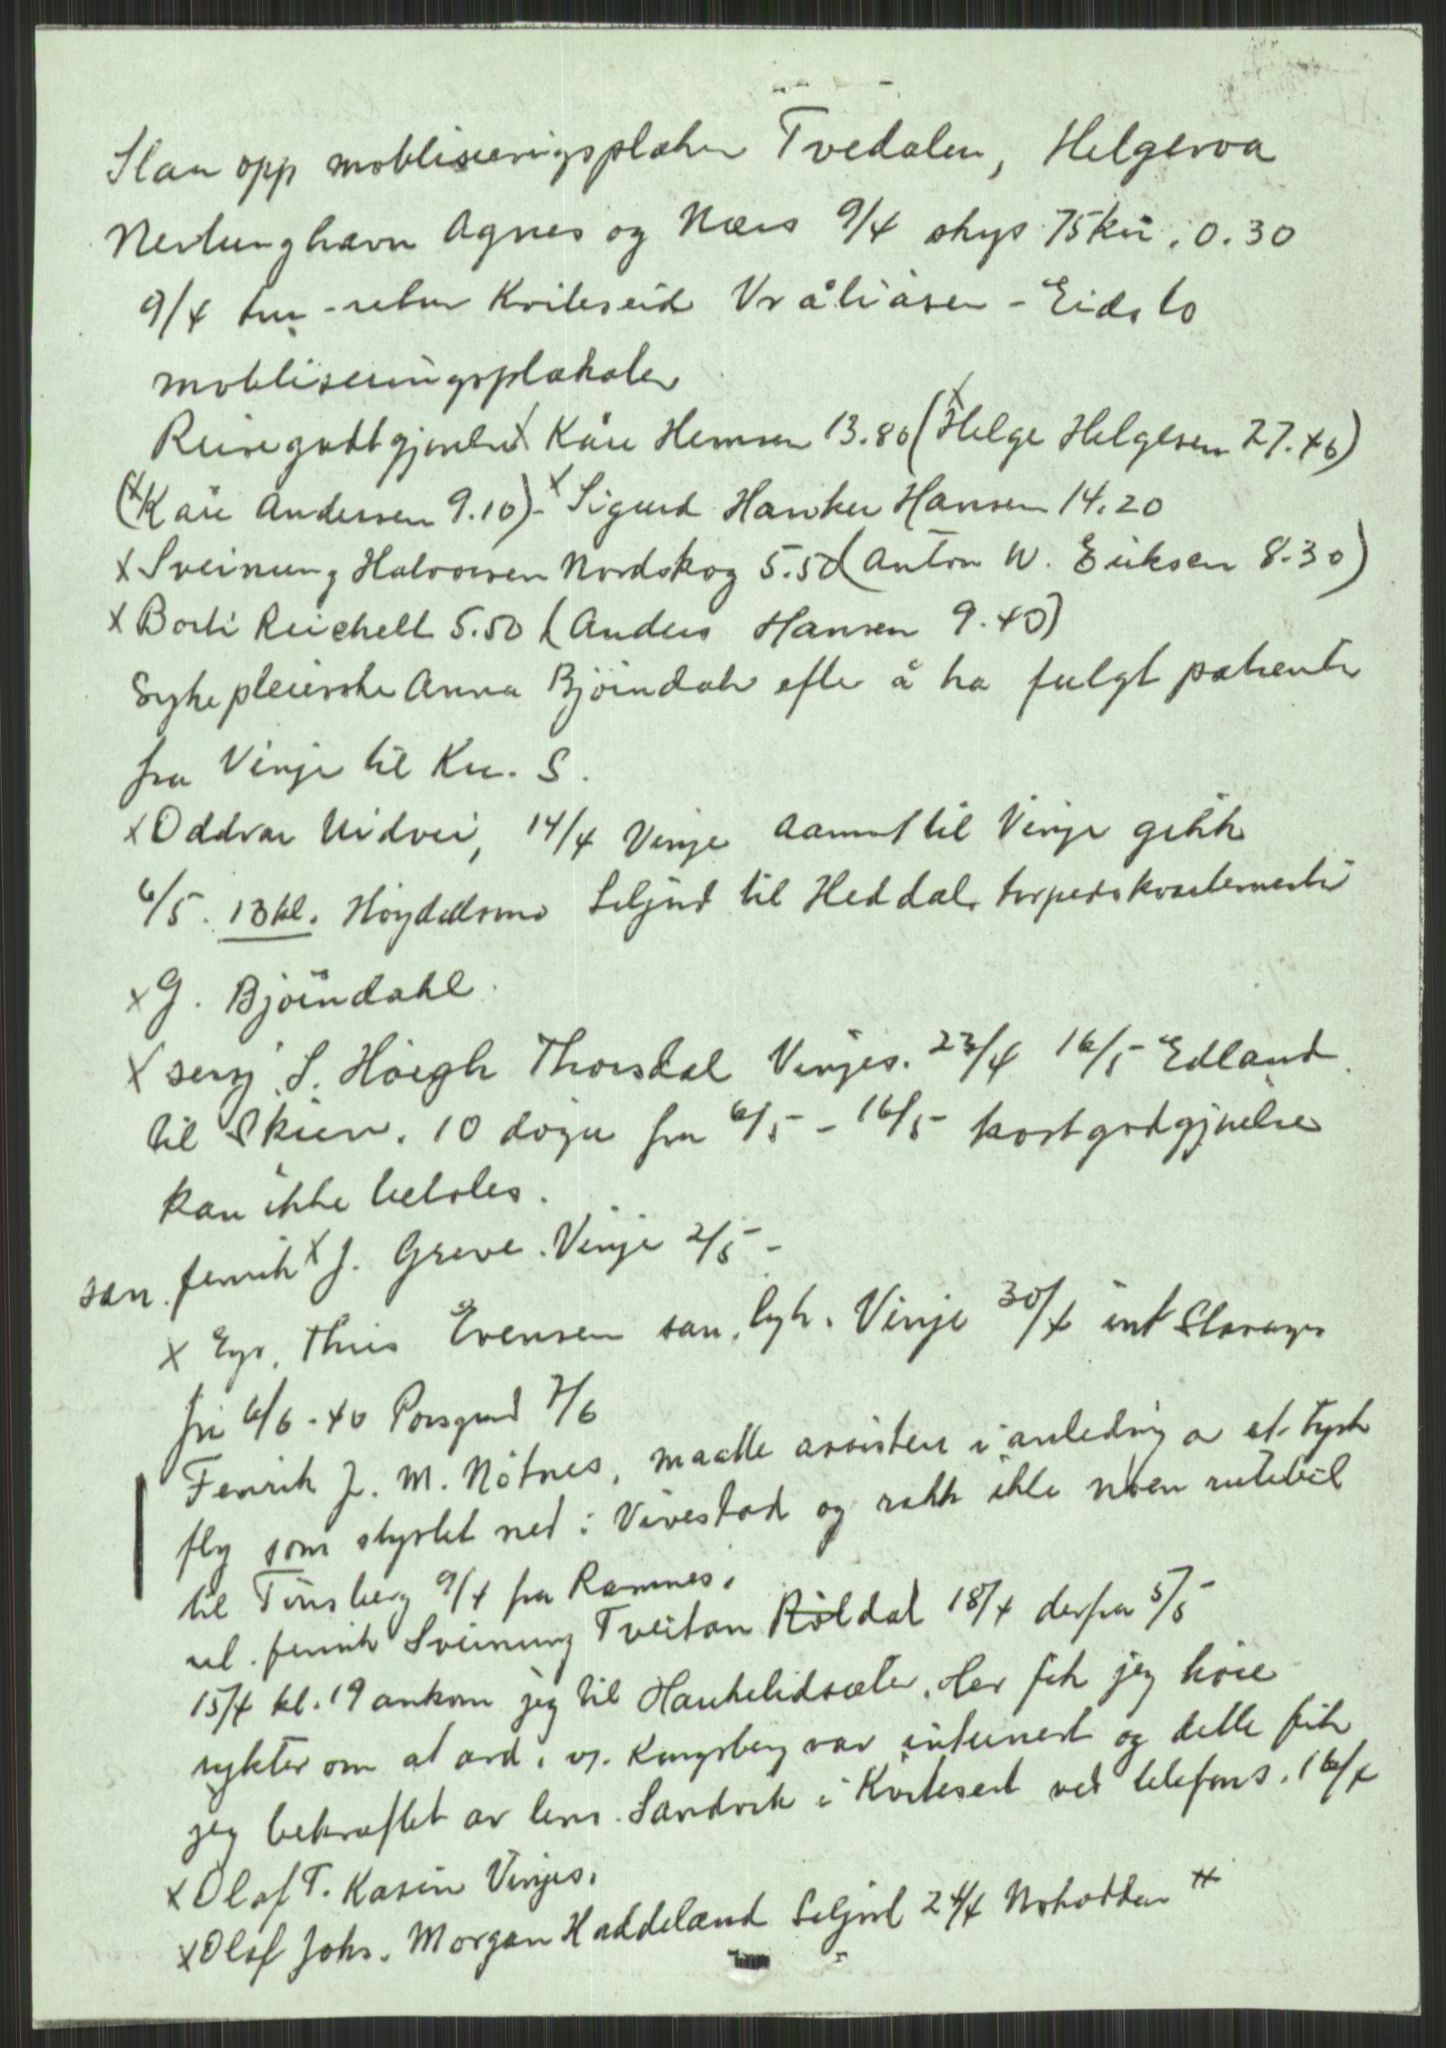 Slaa opp mobliseringsplaker Tvedalen, Helgeroa
Nevlunghavn Agnes og Næs 9/4 skys 75 km. 0.30
9/4 tur-retur Kviteseid Vråliåsen - Eidsto
mobliseringsplakater
Reisegodtgjørelse x Kåre Hemsen 13.80 (x Helge Helgesen 27.40)
(x Kåre Andersen 9.10) - x Sigurd Hansen 14.20
x Sveinung Halvorsen Nordskog 5.50 (Anton W. Eriksen 8.30)
x Reichelt 5.50 (Anders Hansen 9.40)
Sykepleierske Anna Bjørndah efter å ha fulgt patienter
fra Vinje til Kr. S.
x Oddvar Uidvei, 14/4 Vinje Aamot til Vinje gikk
6/5. 13 kl. Høydalsmo Seljord til Heddal.
x G. Bjørndahl.
x serg. S. Høegh Thorsdal Vinjes. 23/4 16/5 Edland
til Skien. 10 døgn fra 6/5 - 16/5 kostgodgjørelse
kan ikke betales.
san. fenrik x J. Greve. Vinje 2/5 -
x Eyv. Thiis Evensen san. Vinje 30/4 int
fri 6/6-40 Porsgrund 7/6
Fenrik J. M. Nøtnes, maatte assistere i anledning av et tysk
fly som styrtet ned i Vivestad og rakk ikke noen rutebil
til Tønsberg 9/4 fra Ramnes.
vl. fenrik Sveinung Tveitan Røldal 18/4 derfra 5/5
15/4 kl. 19 ankom jeg til Haukelidsæter. Her fik jeg høre
rykter om at avd. v. Kongsberg var internert og dette fik
jeg bekreftet av lens. Sandvik i Kviteseid ved telefons. 16/4
x Olaf T. Kasin Vinjes.
x Olaf Johs. Morgan Haddeland Seljord 24/4 Notodden #